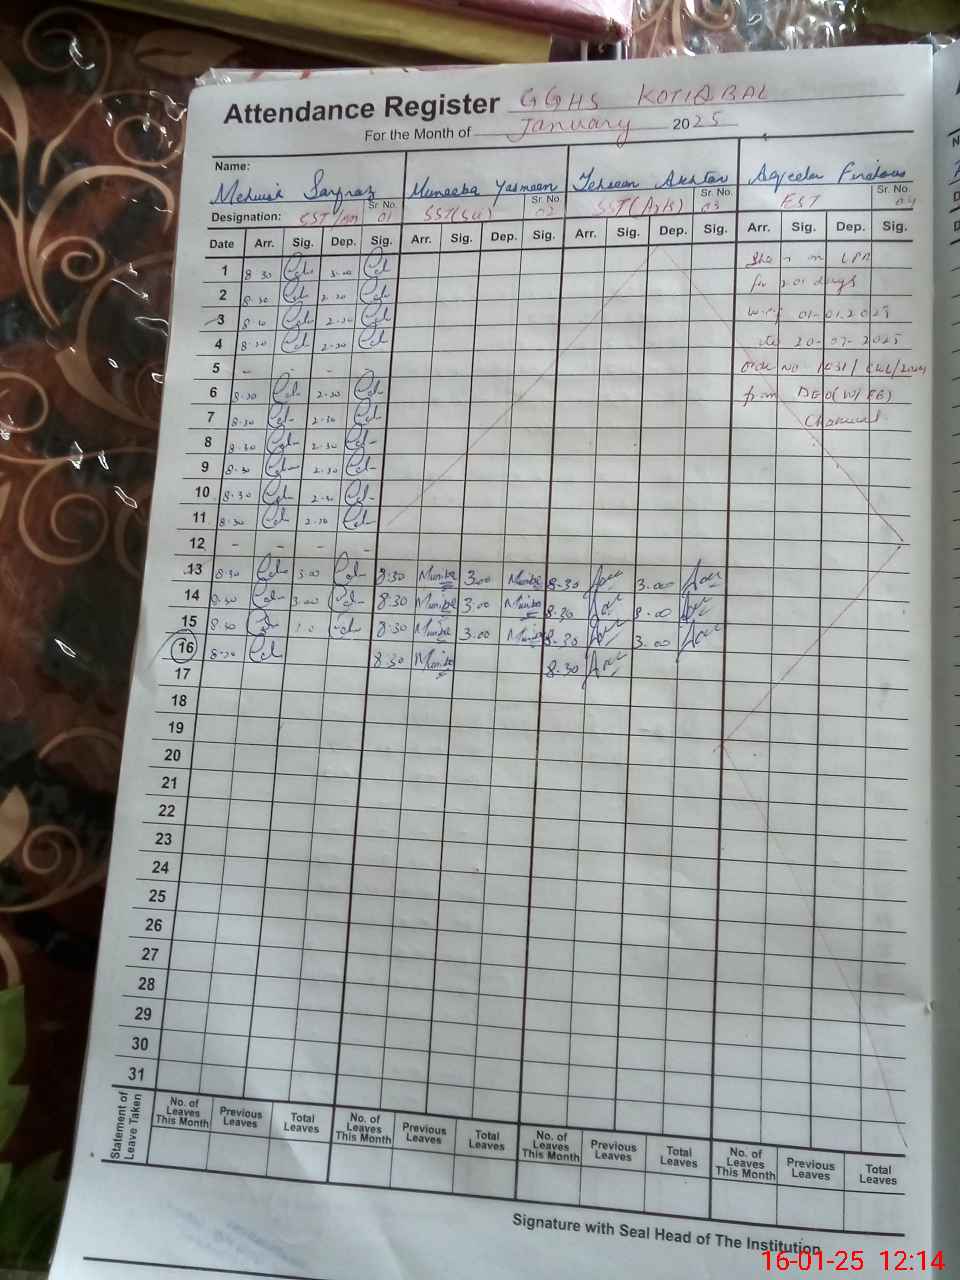 Attendance Register GGHS KOTIQBAL
For the Month of January 2025
Name:
Mehwish Sarfraz Muneeba Yasmeen Tehseen Akhtar Aqeela Firdous
Designation: SST Sr. No. 01 SST(Sci) Sr. No. 02 SST(Arts) Sr. No. 03 EST Sr. No. 04
Date Arr. Sig. Dep. Sig. Arr. Sig. Dep. Sig. Arr. Sig. Dep. Sig. Arr. Sig. Dep. Sig.
1 8.30 3.00 She is on LPR
2 8.30 2.30 for 201 days
3 8.30 2.30 w.e.f 01-01.2025
4 8.30 2.30 to 20-07-2025
5 - - - order No
6 8.30 2.30 from DEO(W/EE)
7 8.30 2.30 Chakwal
8 8.30 2.30
9 8.30 2.30
10 8.30 2.30
11 8.30 2.30
12 - - - -
13 8.30 3.00 8:30 3.00 8.30 3.00
14 8.30 3.00 8.30 3.00 8.30
15 8.30 8.30 3.00 8.30 3.00
16 8.30 8.30 8.30
17
18
19
20
21
22
23
24
25
26
27
28
29
30
31
Statement of Leave Taken
No. of Leaves This Month Previous Leaves Total Leaves No. of Leaves This Month Previous Leaves Total Leaves No. of Leaves This Month Previous Leaves Total Leaves No. of Leaves This Month Previous Leaves Total Leaves
Signature with Seal Head of The Institution
16-01-25 12:14